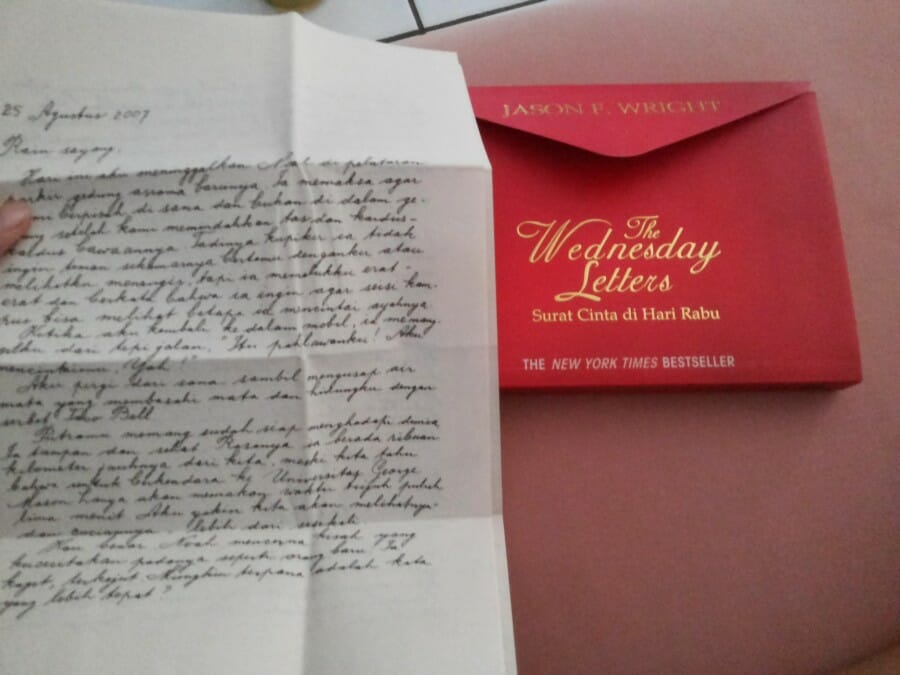 25 Agustus 2007
Rain sayang,
Hari ini aku meninggalkan Noah di pelataran
parkir gedung asrama barunya. Ia memaksa agar
kami berpisah di sana dan bukan di dalam ge-
dung setelah kami memindahkan tas dan kardus-
kardus bawaannya. Tadinya kupikir ia tidak
ingin teman sekamarnya bertemu denganku atau
melihatku menangis, tapi ia memelukku erat-
erat dan berkata bahwa ia ingin agar seisi kam-
pus bisa melihat betapa ia mencintai ayahnya.
Ketika aku kembali ke dalam mobil, ia memang-
gilku dari tepi jalan, "Itu pahlawanku! Aku
mencintaimu, Yah!"
Aku pergi dari sana sambil mengusap air
mata yang membasahi mata dan hidungku dengan
serbet Taco Bell.
Putramu memang sudah siap menghadapi dunia.
Ia tampan dan sehat. Rasanya ia berada ribuan
kilometer jauhnya dari kita, meski kita tahu
bahwa untuk berkendara ke Universitas George
Mason hanya akan memakan waktu tujuh puluh
lima menit. Aku yakin kita akan melihatnya-
dan cuciannya- lebih dari sesekali.
Kau benar. Noah mencerna kisah yang
kuceritakan padanya seperti orang baru. Ia
kaget, terkejut. Mungkin terpana adalah kata
yang lebih tepat?
JASON F. WRIGHT
The
Wednesday
Letters
Surat Cinta di Hari Rabu
THE NEW YORK TIMES BESTSELLER